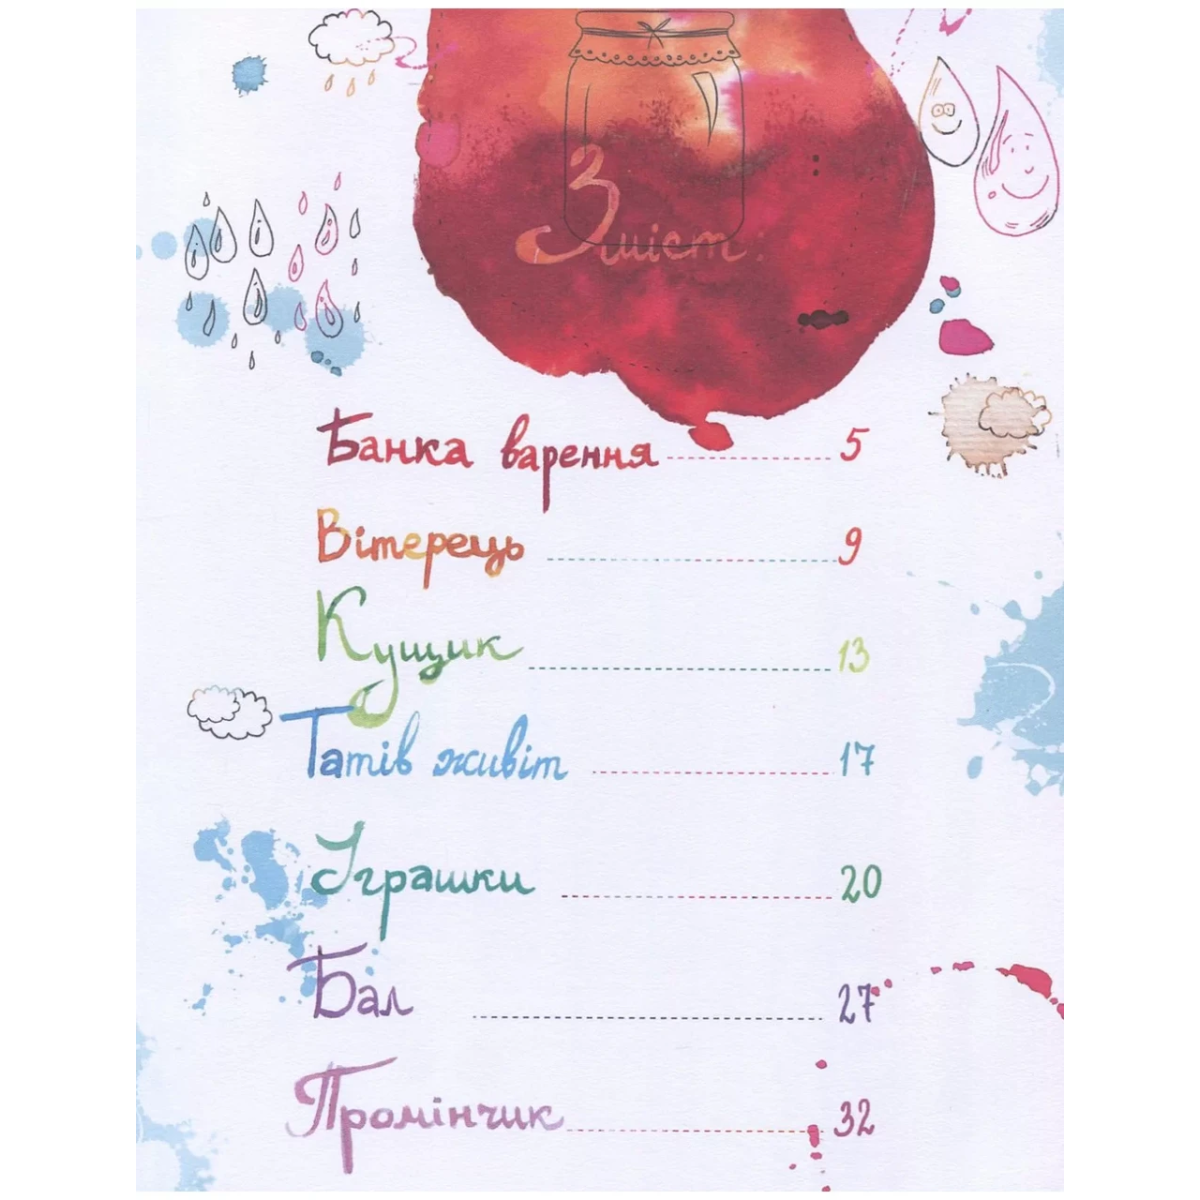 Зміст:
Банка варення 5
Вітерець 9
Кущик 13
Татів живіт 17
Іграшки 20
Бал 27
Промінчик 32